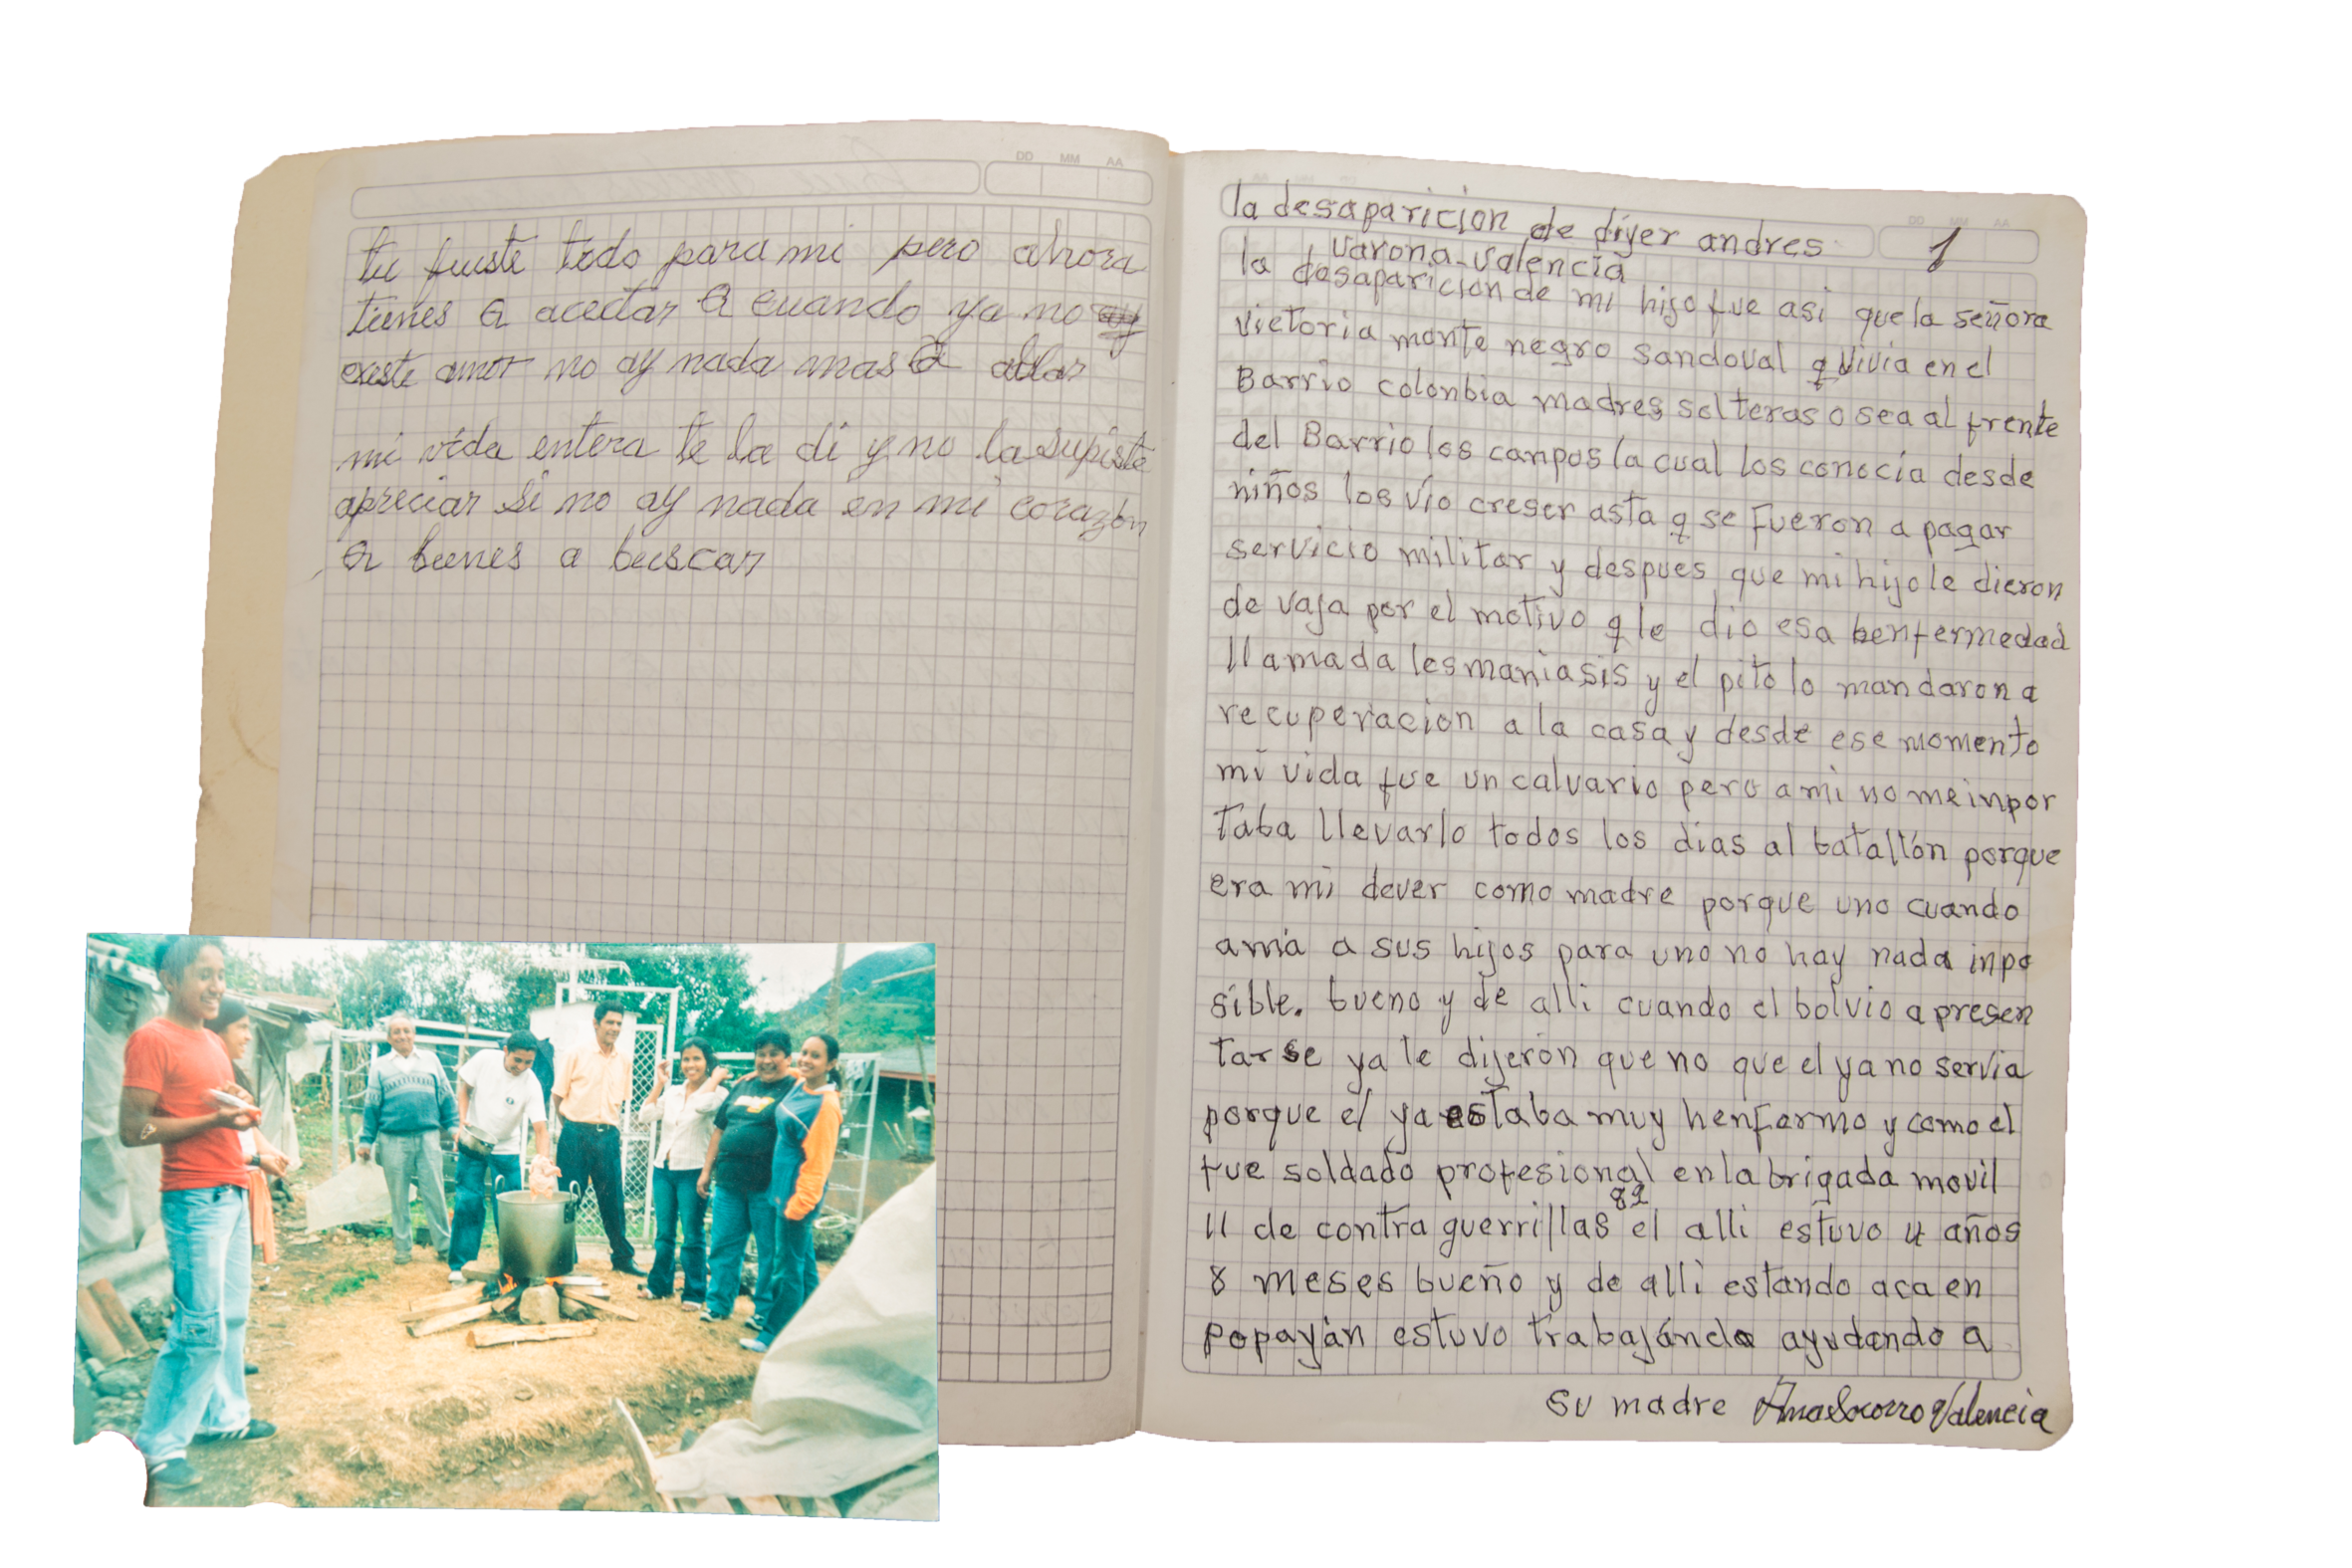 DD MM AA
tu fuiste todo para mi pero ahora
tienes a acectar a cuando ya no ay
existe amor no ay nada mas a ablar
mi vida entera te la di y no la supiste
apreciar si no ay nada en mi corazon
a bienes a buscar
DD MM AA
la desaparicion de diyer andres
varona-valencia
1
la desaparicion de mi hijo fue asi que la señora
victoria monte negro sandoval q vivia en el
Barrio colonbia madres solteras o sea al frente
del Barrio los canpos la cual los conocia desde
niños los vio creser asta q se fueron a pagar
servicio militar y despues que mi hijo le dieron
de vaja por el motivo q le dio esa henfermedad
llamada lesmaniasis y el pito lo mandaron a
recuperacion a la casa y desde ese momento
mi vida fue un calvario pero a mi no me inpor
taba llevarlo todos los dias al batallón porque
era mi dever como madre porque uno cuando
ama a sus hijos para uno no hay nada inpo
sible. bueno y de alli cuando el bolvio a presen
tarse ya le dijeron que no que el ya no servia
porque el ya estaba muy henfermo y como el
fue soldado profesional en la brigada movil
11 de contra guerrillas 82 el alli estuvo 4 años
8 meses bueno y de alli estando aca en
popayán estuvo trabajando ayudando a
su madre Ana Socorro Valencia